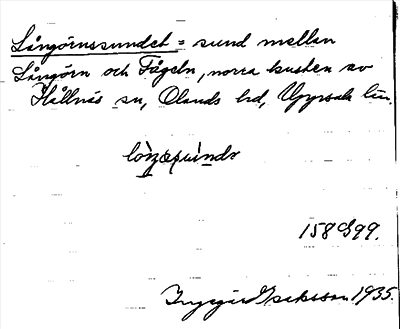 Långörnssundet = sund mellan
Långörn och Fågeln, norra kusten av
Hållnäs sn, Olands hd, Uppsala län.
158 G 99.
Ingegärd Isaksson 1935.